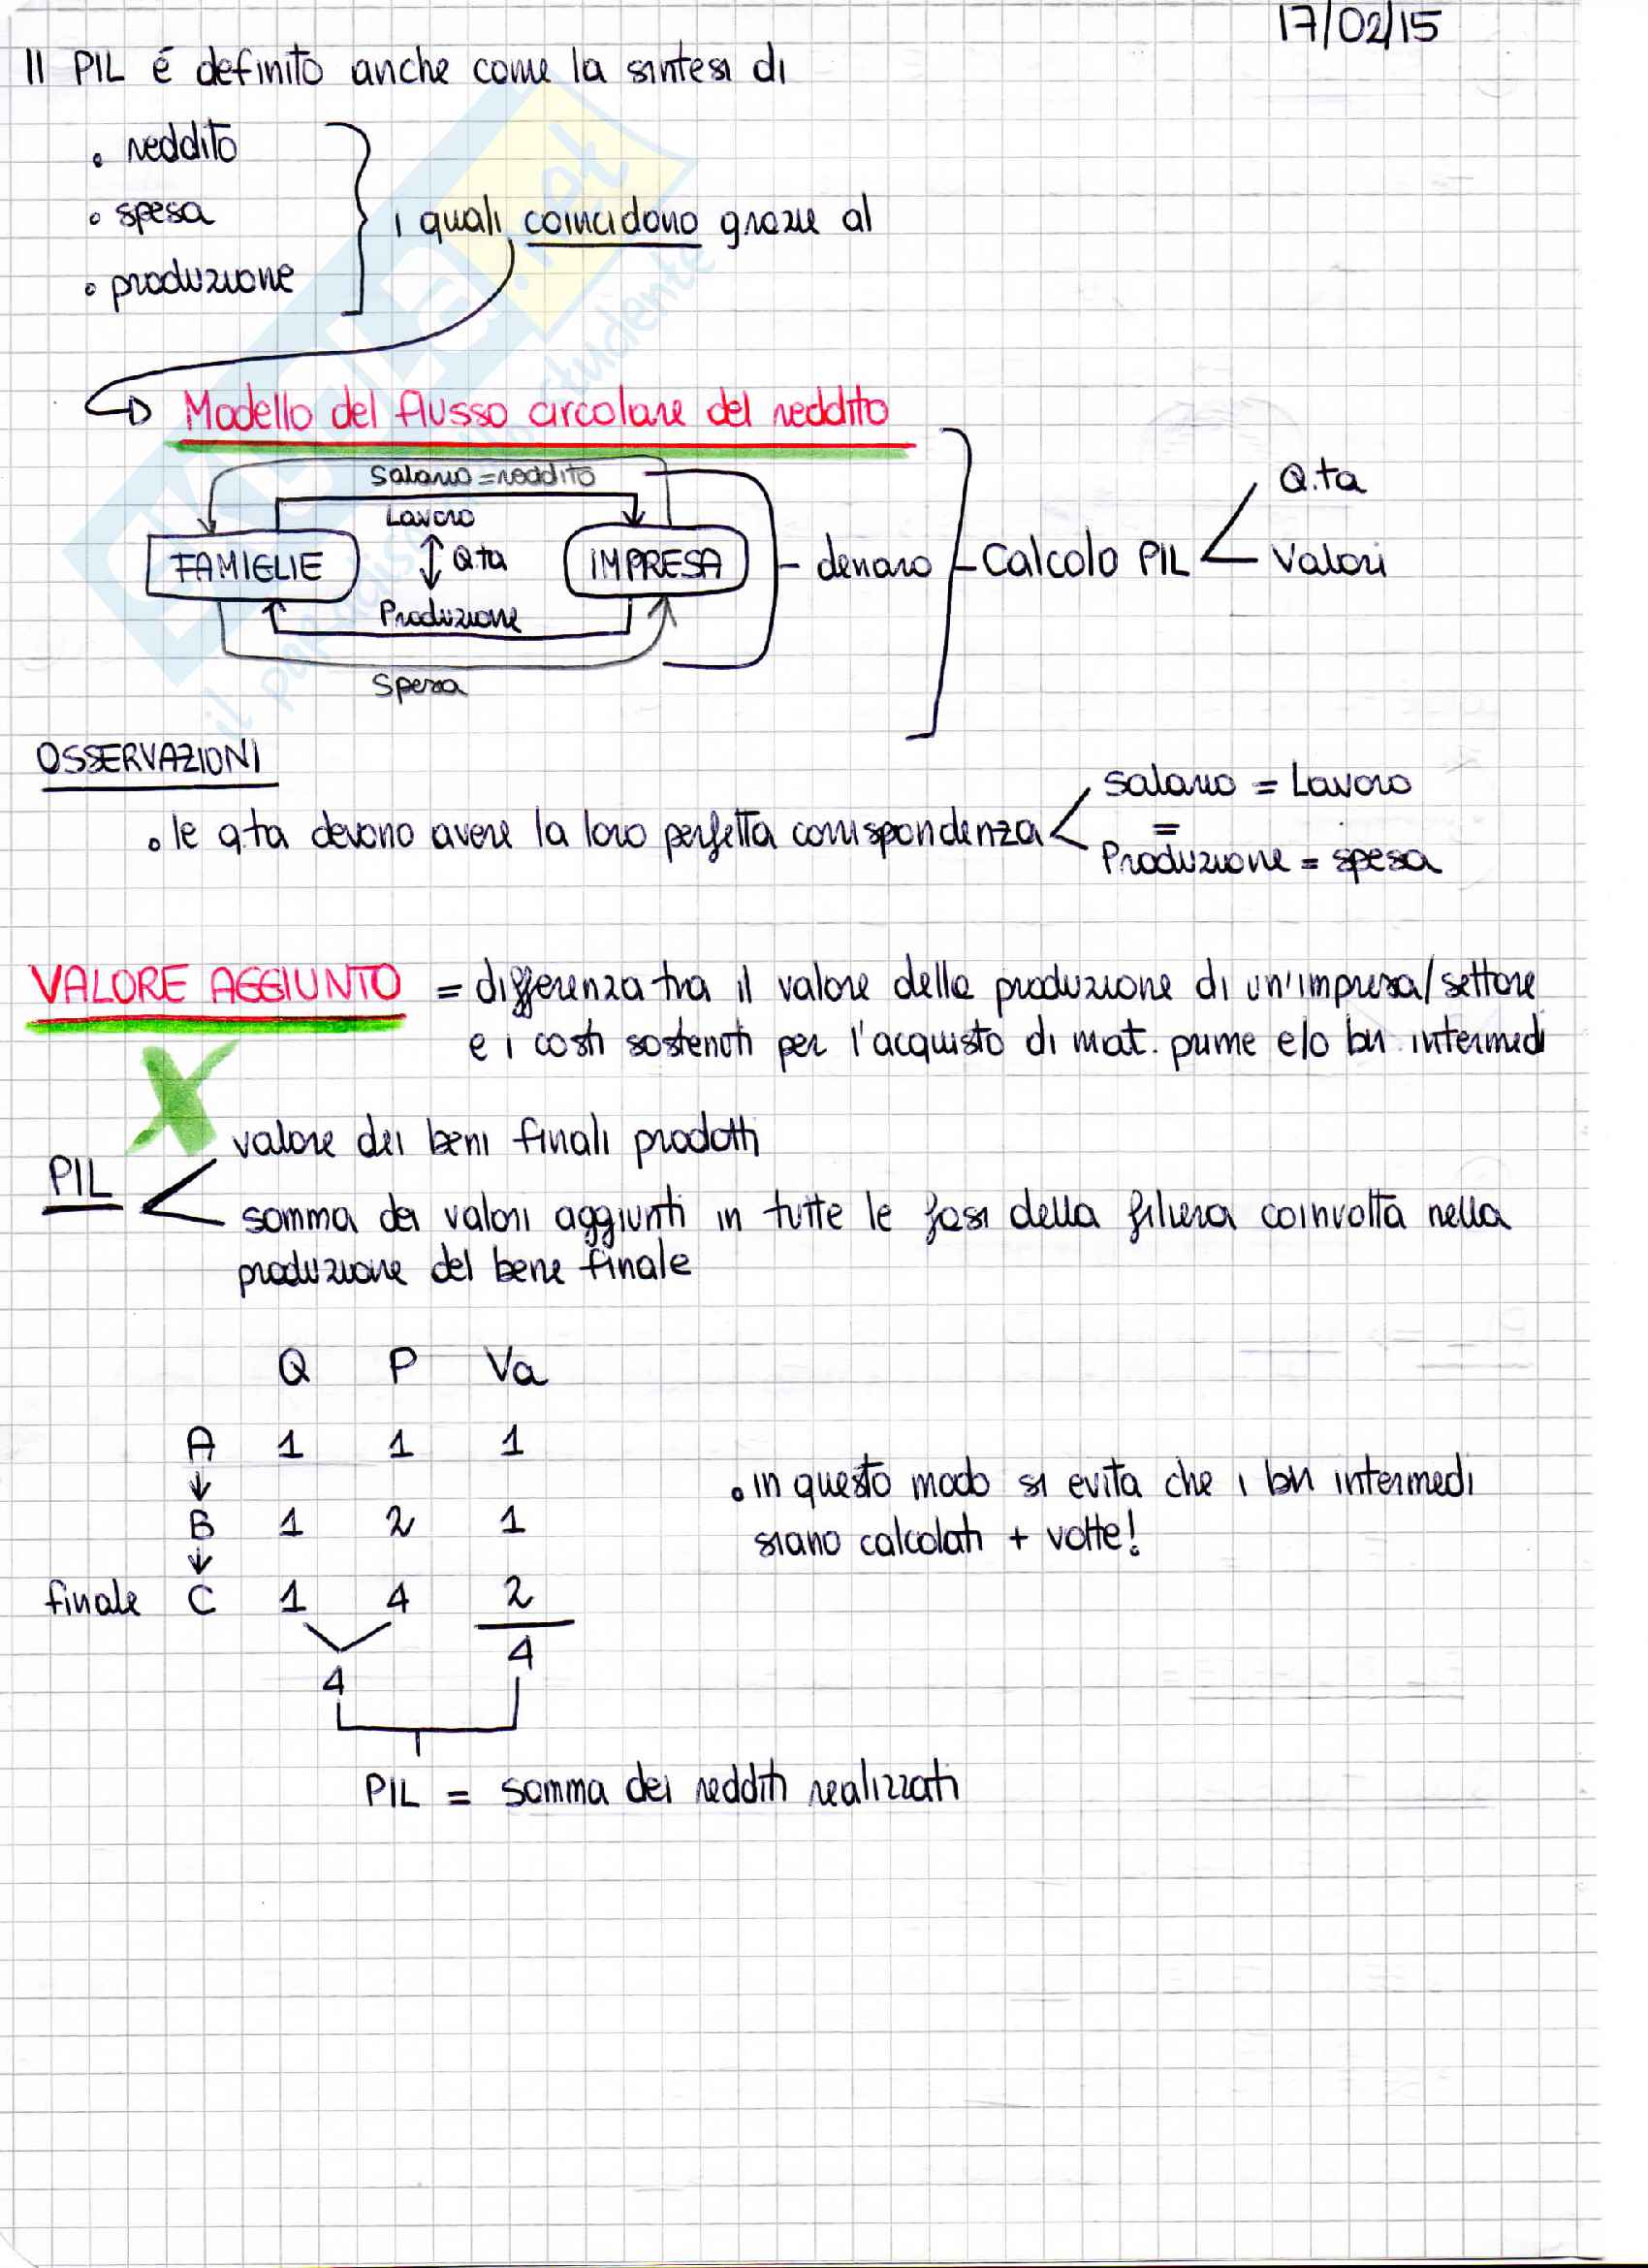 17/02/15
Il PIL é definito anche come la sintesi di
• reddito
• spesa
• produzione
i quali coincidono grazie al
Modello del flusso circolare del reddito
Salario = reddito
Lavoro
FAMIGLIE
Q.ta
IMPRESA
Produzione
Spesa
denaro
Calcolo PIL
Q.ta
Valori
OSSERVAZIONI
• le q.ta devono avere la loro perfetta corrispondenza
Salario = Lavoro
=
Produzione = spesa
VALORE AGGIUNTO = differenza tra il valore della produzione di un'impresa/settore
e i costi sostenuti per l'acquisto di mat. prime e/o bn intermedi
PIL
valore dei beni finali prodotti
somma dei valori aggiunti in tutte le fasi della filiera coinvolta nella
produzione del bene finale
Q P Va
A 1 1 1
B 1 2 1
finale C 1 4 2
4
4
• in questo modo si evita che i bn intermedi
siano calcolati + volte!
PIL = somma dei redditi realizzati